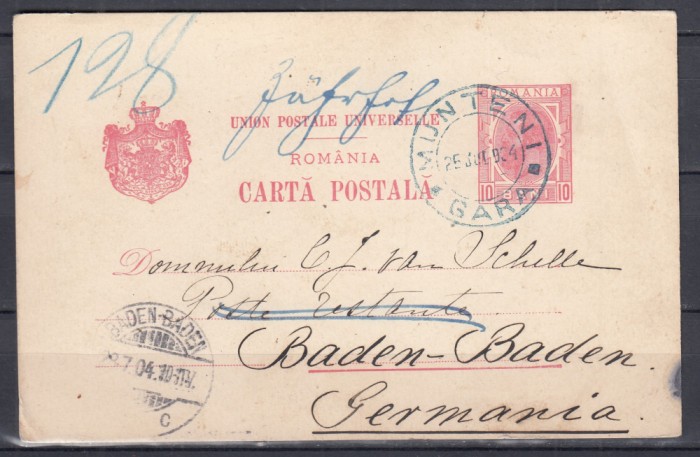 128
UNION POSTALE UNIVERSELLE
ROMÂNIA
CARTĂ POSTALĂ
ROMANIA
10 10
MUNTENI
25 JUL 904
GARA
Domnului C. J. van Schelle
Poste restante
Baden-Baden.
Germania.
BADEN-BADEN
7.04.10-11V.
C